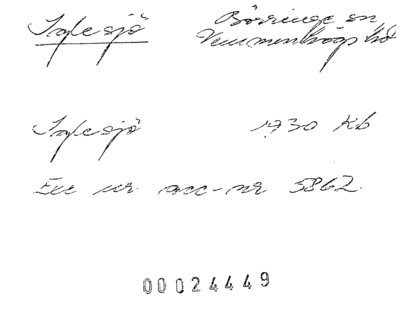 Inglesjö Börringe sn,
Vemmenhögs hd
Inglesjö 1730 Kb
Exc ur acc-nr 5862.
00024449